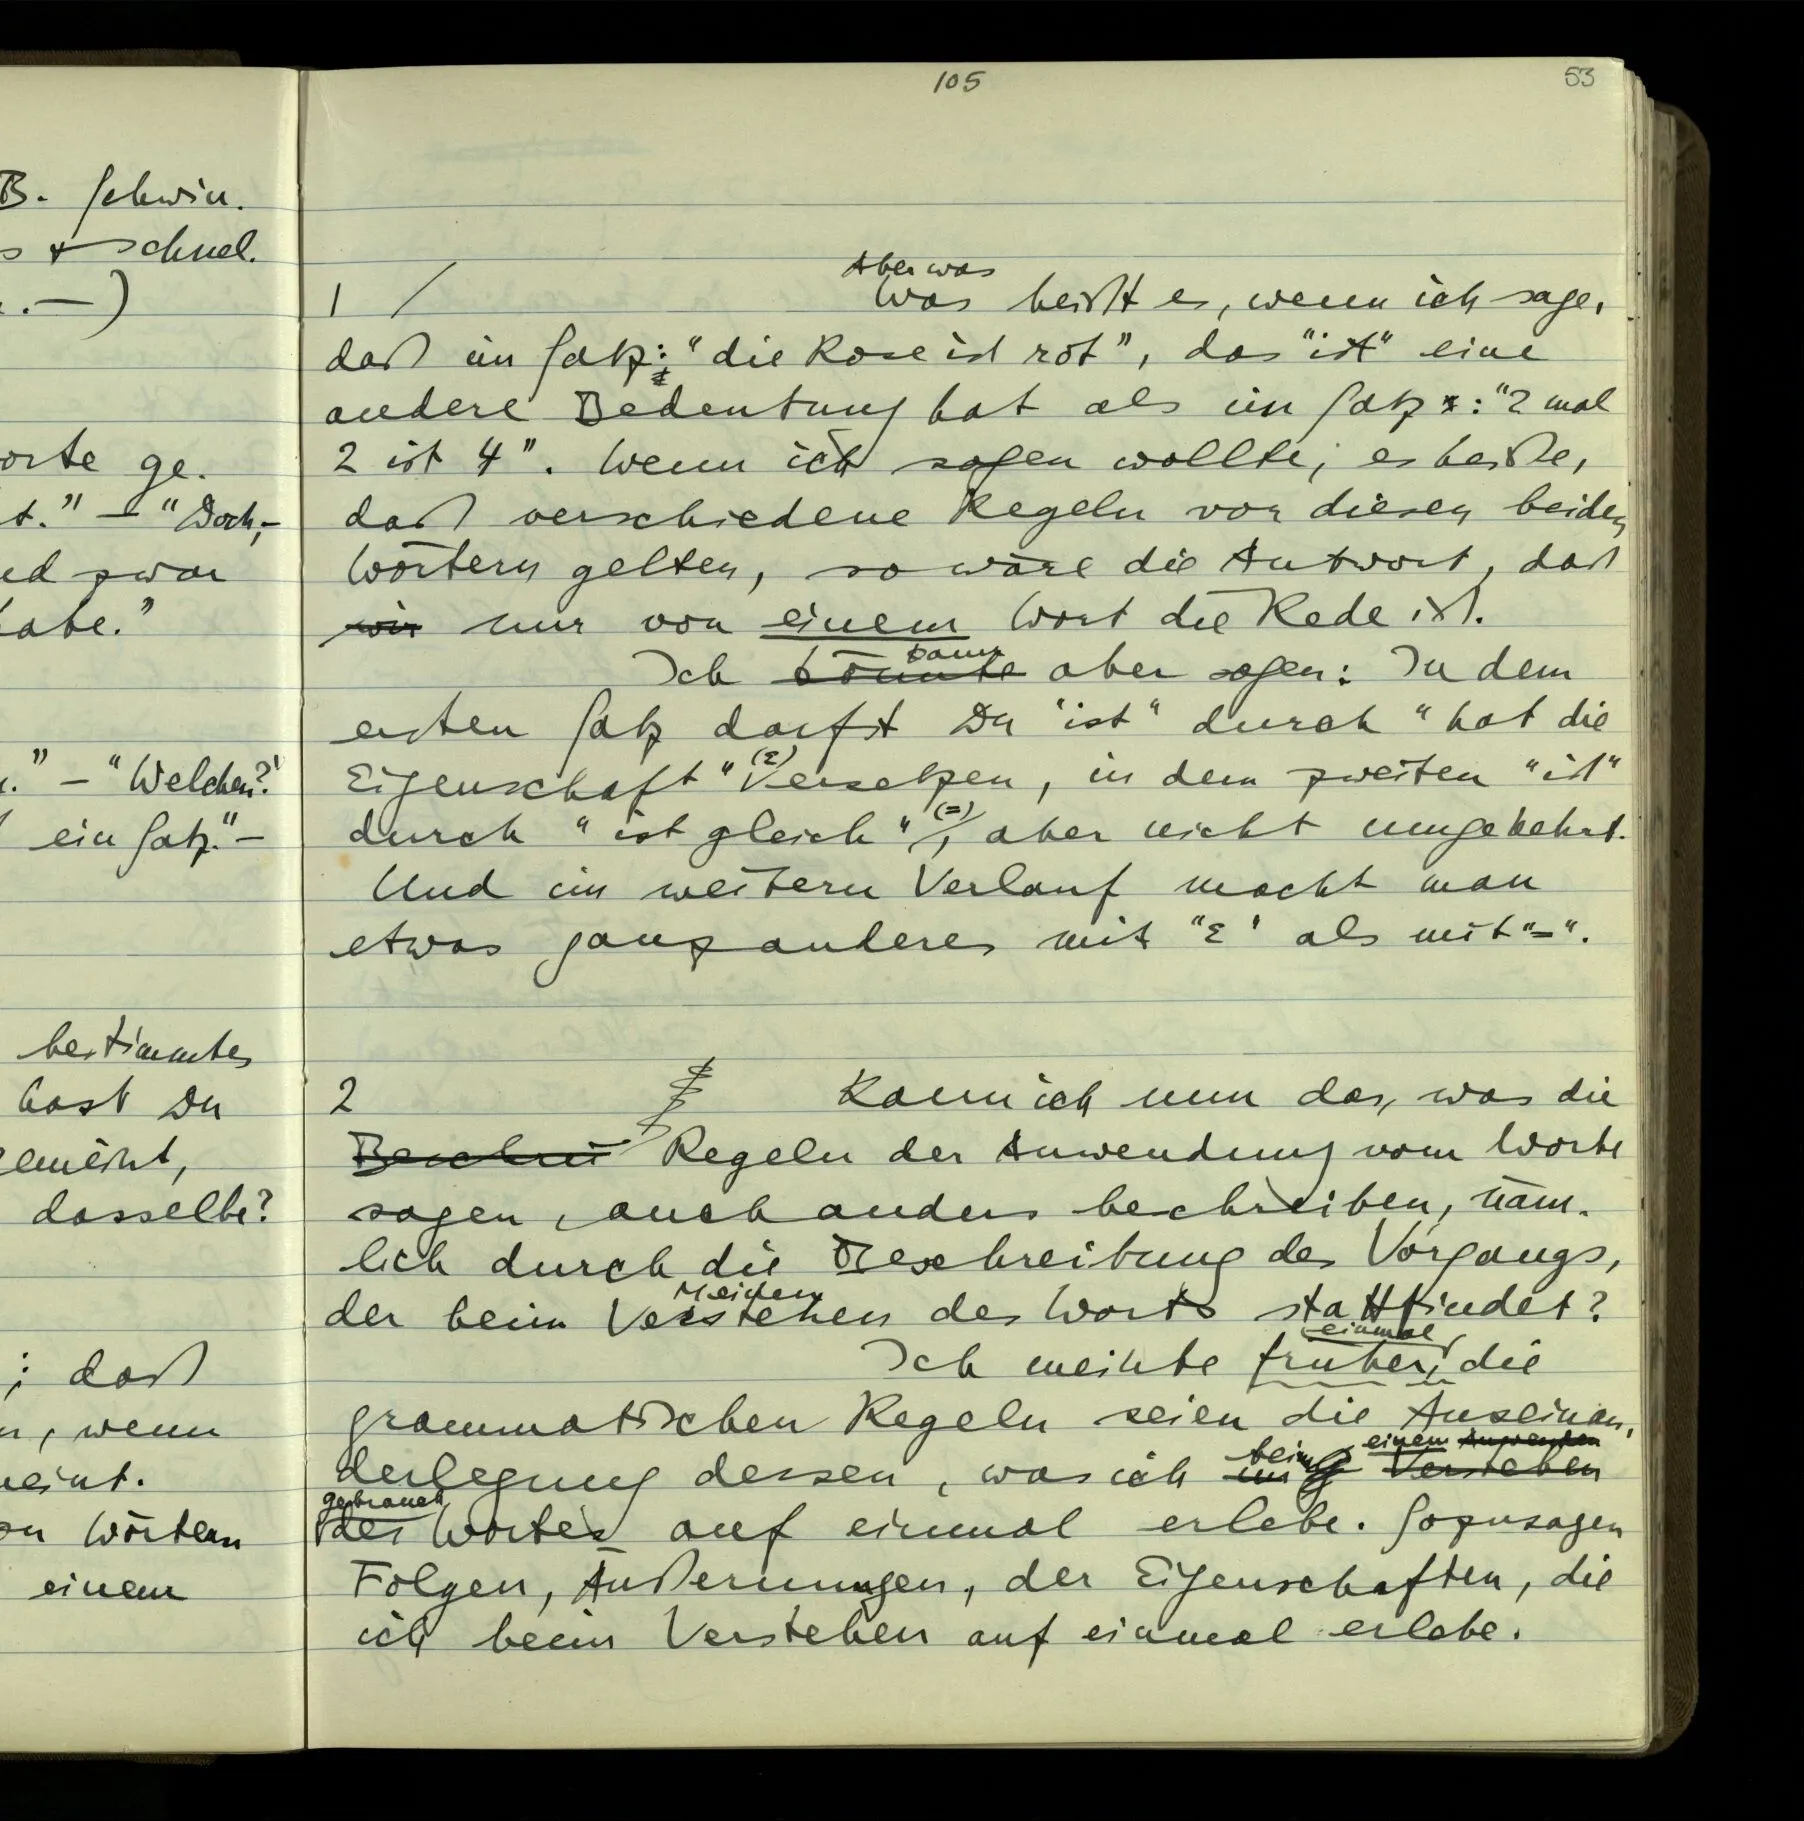 B. Schwin-
s & schnel-
.—)
orte ge-
t." – "Doch,–
nd zwar
habe."
." – "Welchen?"
ein Satz." –
bestimmtes
hast Du
gemeint,
dasselbe?
; daß
n, wenn
meint.
on Wörtern
einem
105
53
Aber was
1 / Was heißt es, wenn ich sage,
daß im Satz: "die Rose ist rot", das "ist" eine
andere Bedeutung hat als im Satz: "2 mal
2 ist 4". Wenn ich sagen wollte, es heiße,
daß verschiedene Regeln von diesen beiden
Wörtern gelten, so wäre die Antwort, daß
wir nur von einem Wort die Rede ist.
kann
Ich könnte aber sagen: In dem
ersten Satz darfst Du "ist" durch "hat die
(ε)
Eigenschaft" ersetzen, in dem zweiten "ist"
(=)
durch "ist gleich", aber nicht umgekehrt.
Und im weitern Verlauf macht man
etwas ganz anderes mit "ε" als mit "=".
2 Kann ich nun das, was die
Beschrei Regeln der Anwendung vom Worte
sagen, auch anders beschreiben, näm-
lich durch die Beschreibung des Vorgangs,
Meinen
der beim Verstehen des Worts stattfindet?
einmal
Ich meinte früher, die
grammatischen Regeln seien die Auseinan-
beim einem Anwenden
derlegung dessen, was ich im Verstehen
gebrauch
des Wortes auf einmal erlebe. Sozusagen
Folgen, Äußerungen, der Eigenschaften, die
ich beim Verstehen auf einmal erlebe.